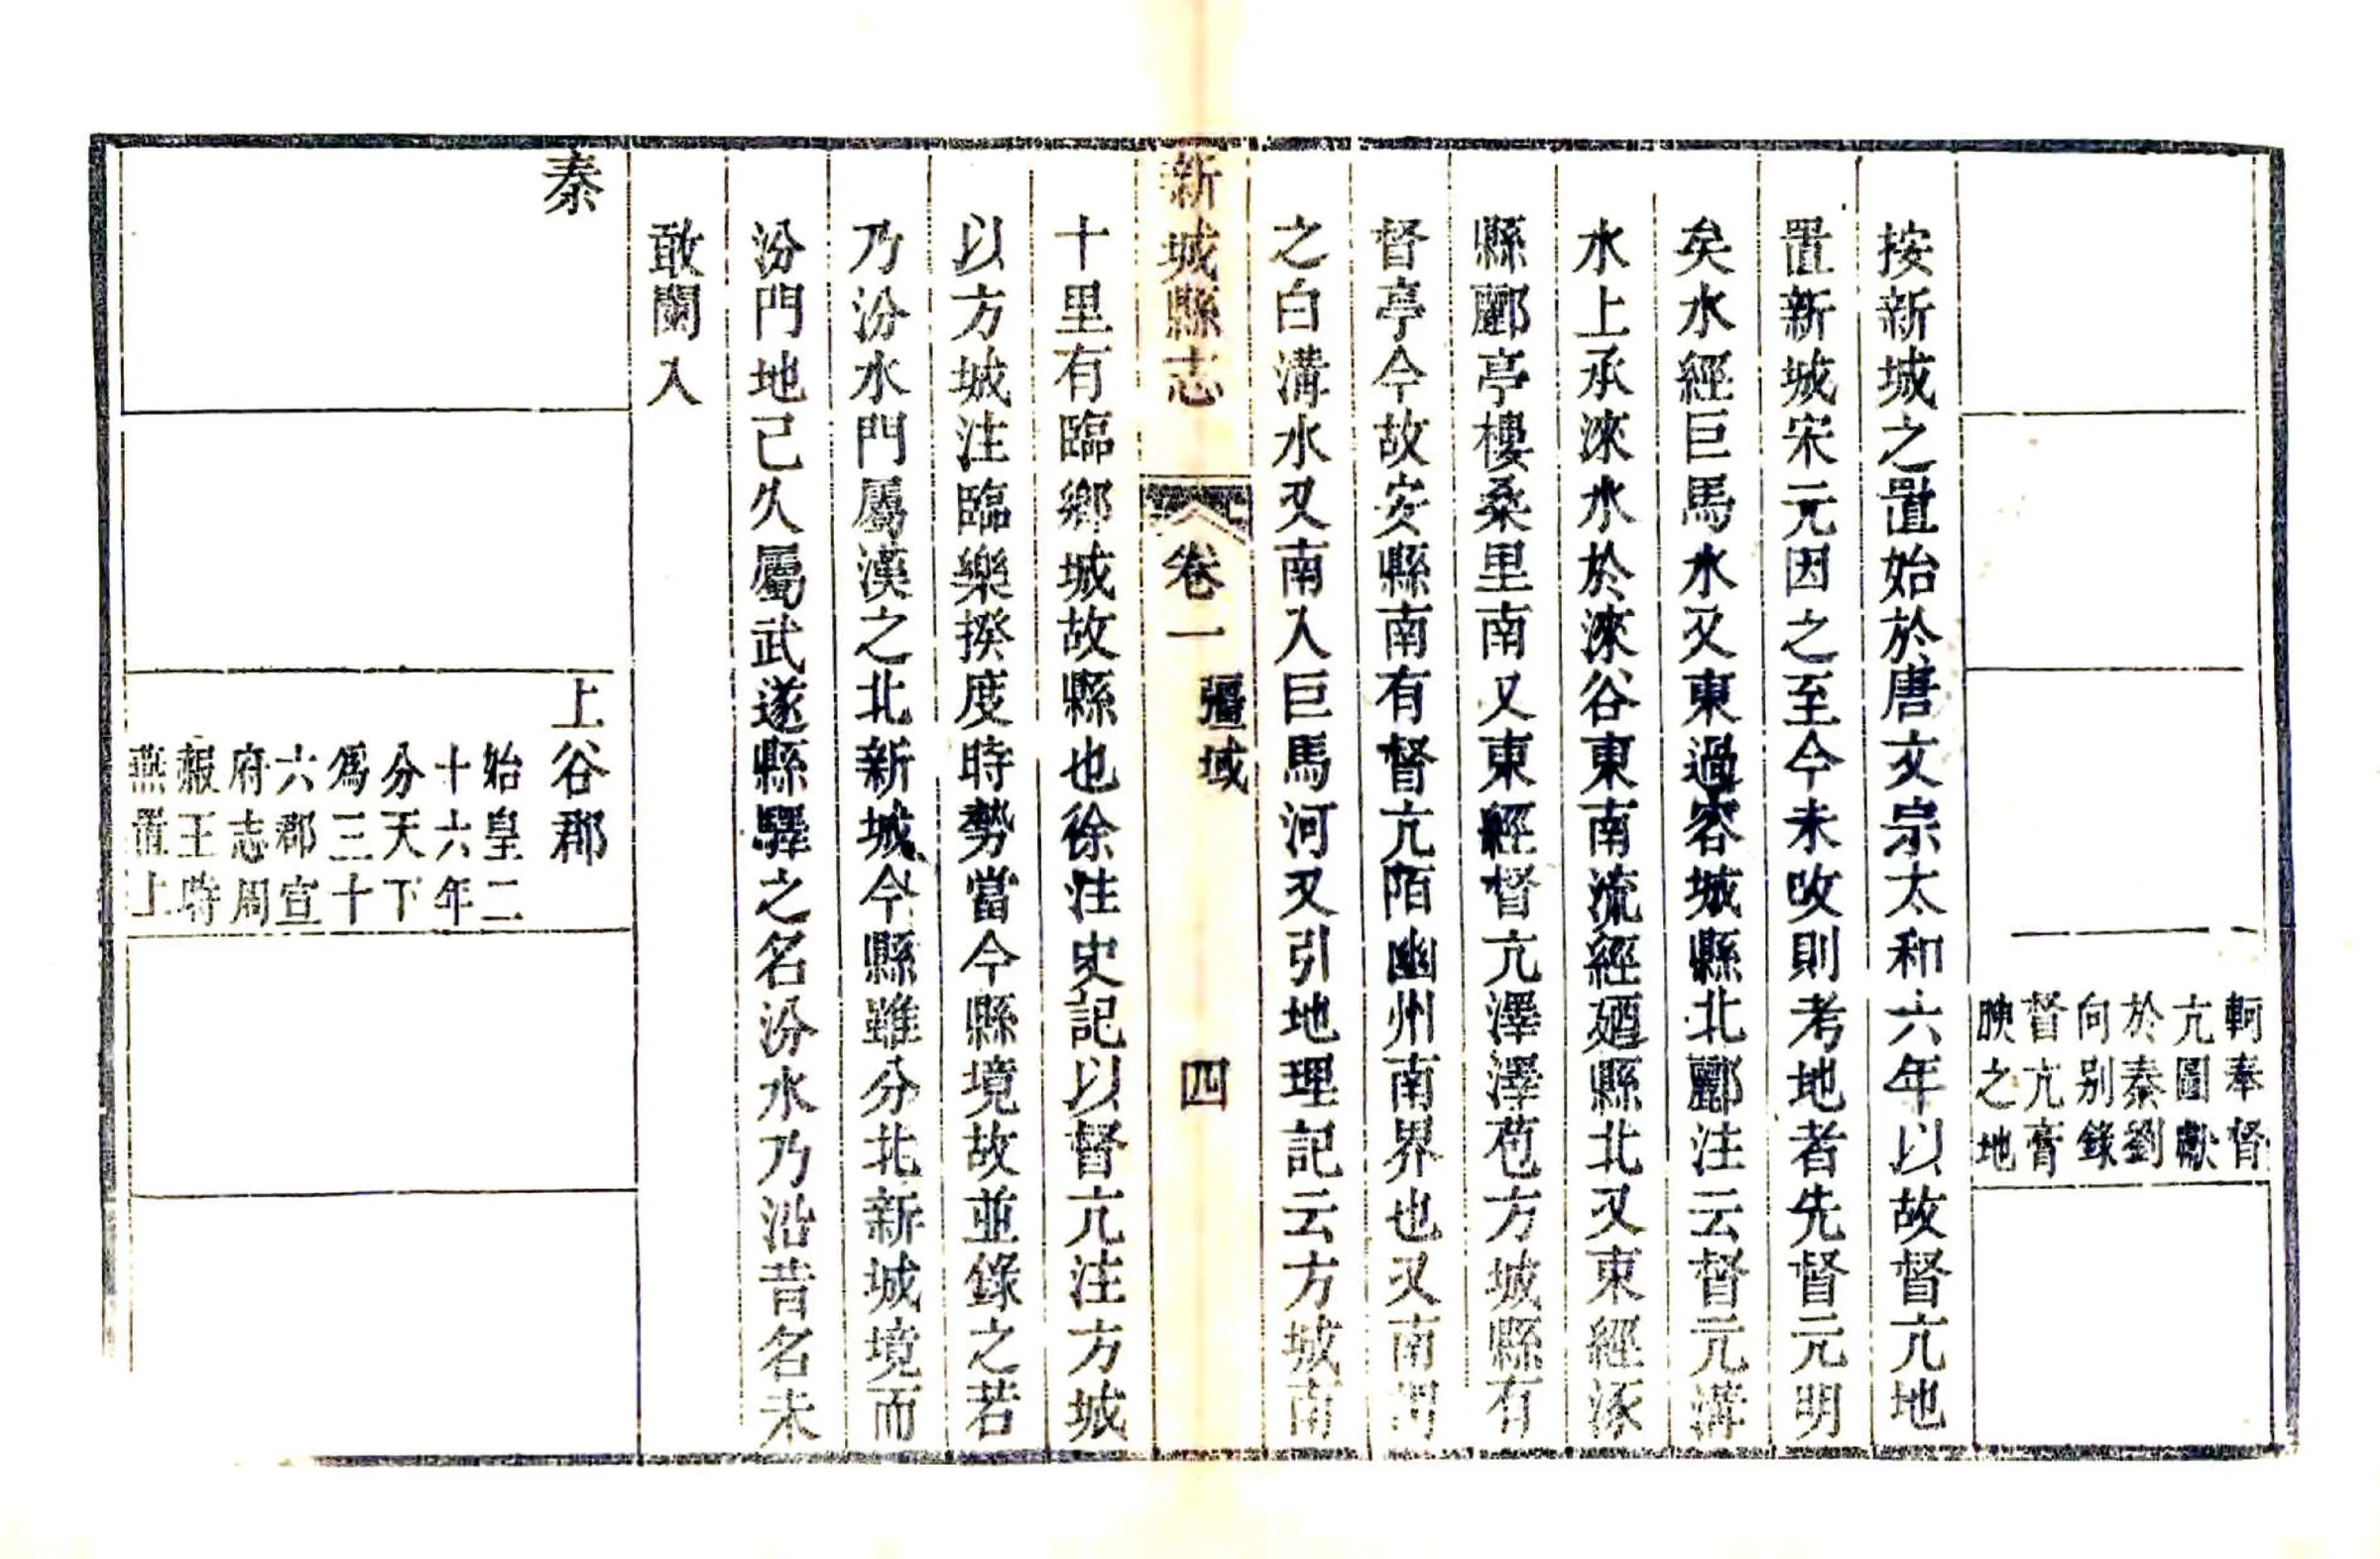 軻奉督
亢圖獻
於秦劉
向别錄
督亢膏
腴之地
按新城之置始於唐文宗太和六年以故督亢地
置新城宋元因之至今未攺則考地者先督亢明
矣水經巨馬水又東過容城縣北酈注云督亢溝
水上承淶水於淶谷東南流經遒縣北又東經涿
縣酈亭樓桑里南又東經督亢澤澤苞方城縣有
督亭今故安縣南有督亢陌幽州南界也又南謂
之白溝水又南入巨馬河又引地理記云方城南
新城縣志
卷一
疆域
四
十里有臨鄉城故縣也徐注史記以督亢注方城
以方城注臨樂揆度時勢當今縣境故並錄之若
乃汾水門屬漢之北新城今縣雖分北新城境而
汾門地已久屬武遂縣驛之名汾水乃沿昔名未
敢闌入
秦
上谷郡
始皇二
十六年
分天下
爲三十
六郡宣
府志周
赧王時
燕置上